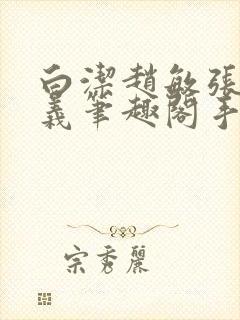 白潔趙敏張
義筆趣閣手
宗秀麗